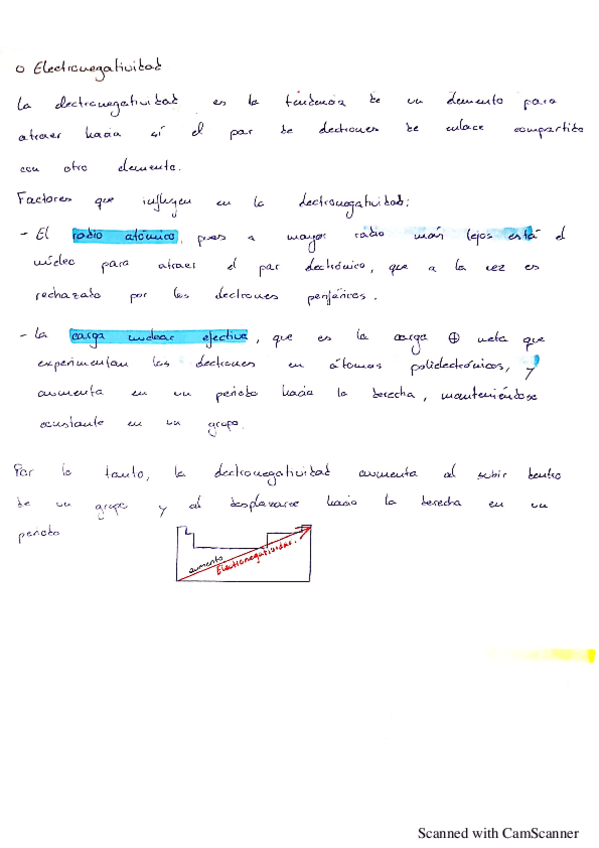 o Electronegatividad
La electronegatividad es la tendencia de un elemento para
atraer hacia sí el par de electrones de enlace compartido
con otro elemento.
Factores que influyen en la electronegatividad:
- El radio atómico, pues a mayor radio más lejos está el
núcleo para atraer el par electrónico, que a la vez es
rechazado por los electrones periféricos.
- La carga nuclear efectiva, que es la carga ⊕ neta que
experimentan los electrones en átomos polielectrónicos, y
aumenta en un periodo hacia la derecha, manteniéndose
constante en un grupo.
Por lo tanto, la electronegatividad aumenta al subir dentro
de un grupo y al desplazarse hacia la derecha en un
periodo
aumento
Electronegatividad.
Scanned with CamScanner